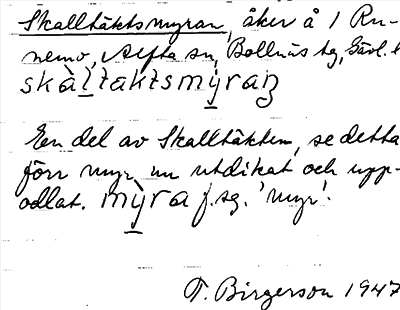 Skalltäktsmyran, åker å 1 Ru-
nemo, Alfta sn, Bollnäs tg, Gävl. l
skàltaktsmỳraṇ
En del av Skalltäkten, se detta
förr myr, nu utdikat och upp-
odlat. mỳra f. sg. 'myr'.
T. Birgerson 1947